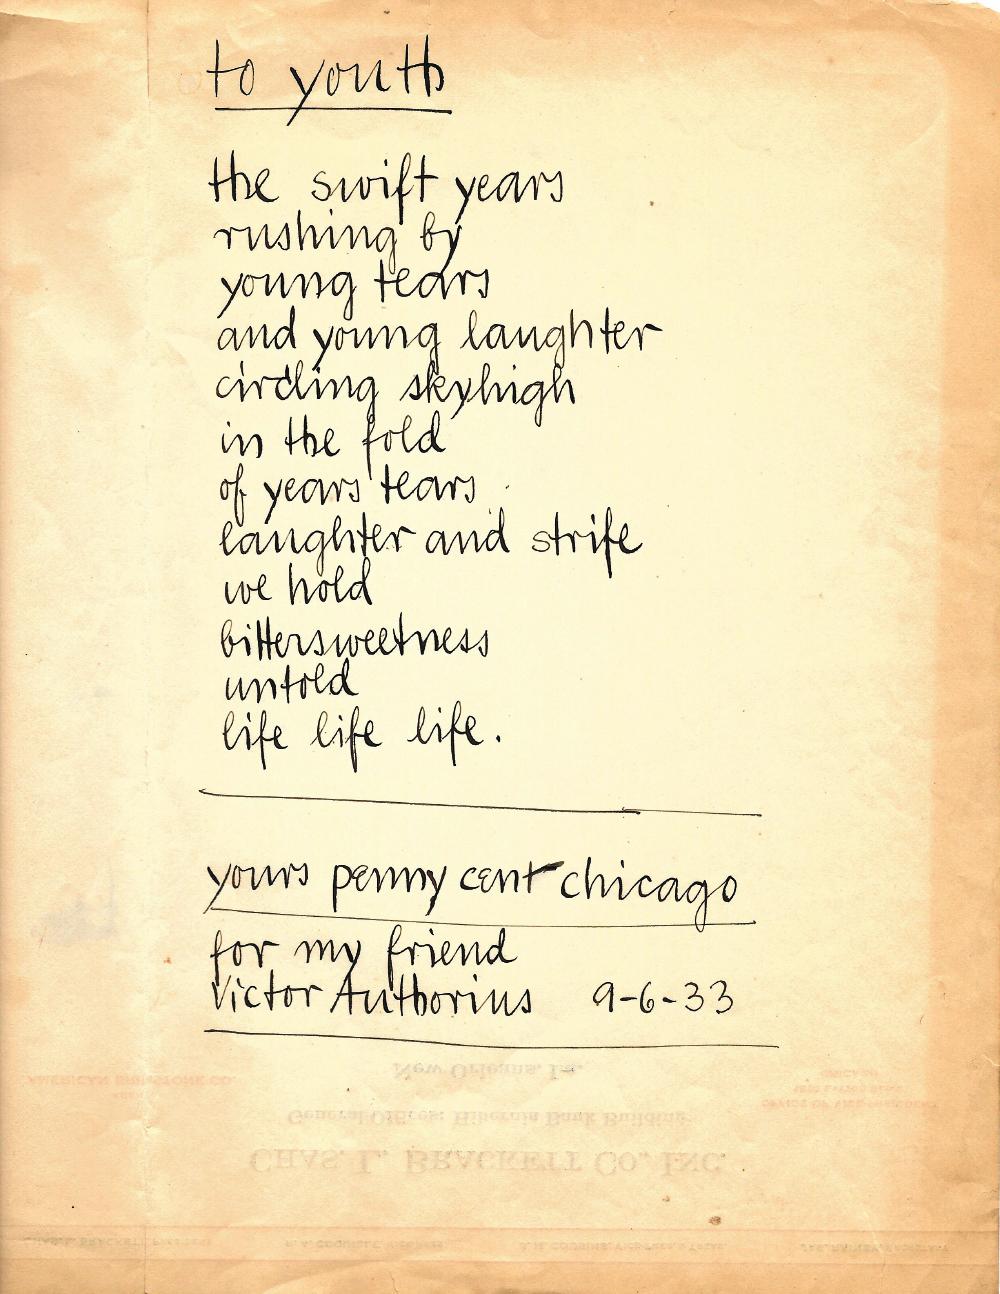 to youth
the swift years
rushing by
young tears
and young laughter
circling skyhigh
in the fold
of years tears
laughter and strife
we hold
bittersweetness
untold
life life life.
yours penny cent chicago
for my friend
Victor Authorius 9-6-33
New Orleans, La.
General Offices: Hibernia Bank Building
CHAS. L. BRACKETT CO., INC.